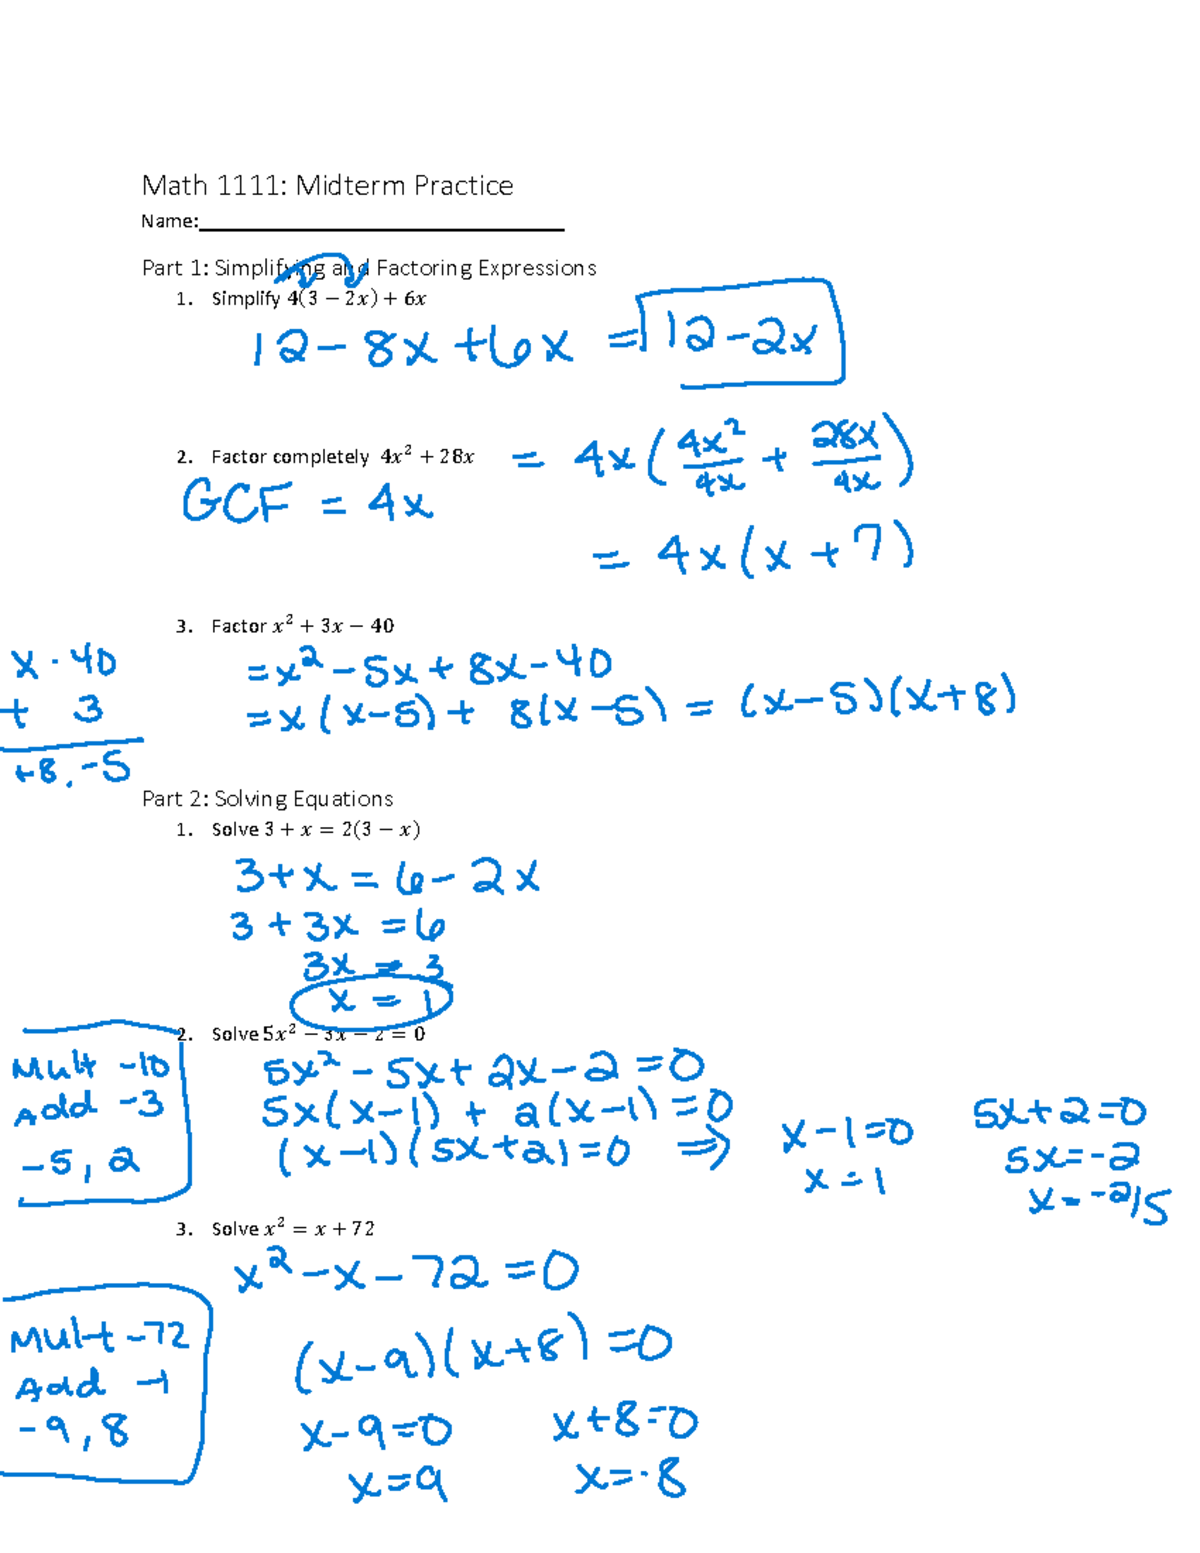 Math 1111: Midterm Practice
Name:
Part 1: Simplifying and Factoring Expressions
1. Simplify 4(3 − 2x) + 6x
12 - 8x + 6x = 12 - 2x
2. Factor completely 4x² + 28x = 4x(4x²/4x + 28x/4x)
GCF = 4x
= 4x(x + 7)
3. Factor x² + 3x − 40
x - 40
+ 3
+8, -5
= x² - 5x + 8x - 40
= x(x-5) + 8(x-5) = (x-5)(x+8)
Part 2: Solving Equations
1. Solve 3 + x = 2(3 − x)
3 + x = 6 - 2x
3 + 3x = 6
3x = 3
x = 1
2. Solve 5x² − 3x − 2 = 0
Mult -10
Add -3
-5, 2
5x² - 5x + 2x - 2 = 0
5x(x-1) + 2(x-1) = 0
(x-1)(5x+2) = 0 ⇒
x - 1 = 0
x = 1
5x + 2 = 0
5x = -2
x = -2/5
3. Solve x² = x + 72
x² - x - 72 = 0
Mult -72
Add -1
-9, 8
(x-9)(x+8) = 0
x - 9 = 0
x = 9
x + 8 = 0
x = -8